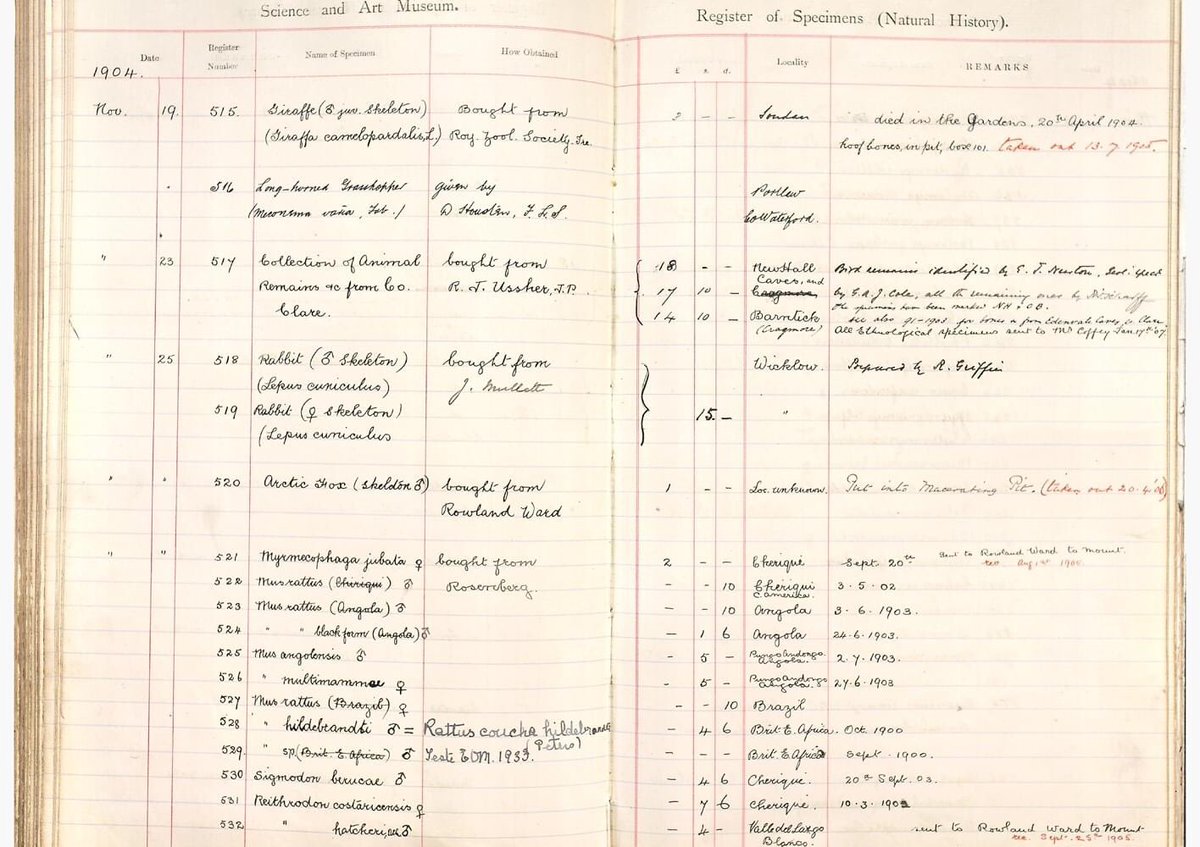 Science and Art Museum.
Register of Specimens (Natural History).
Date
Register Number
Name of Specimen
How Obtained
£ s. d.
Locality
REMARKS
1904.
Nov. 19. 515. Giraffe (♂ juv. Skeleton) Bought from 2 – – Soudan died in the Gardens, 20th April 1904.
(Giraffa camelopardalis, L.) Roy. Zool. Society. Ire. hoof bones, in pit, box 101. taken out 13.7.1905.
516 Long-horned Grasshopper given by Portlaw
(Meconema varia, Fab.) D Houston, F.L.S. Co Waterford.
" 23 517 Collection of Animal bought from 18 – – Newhall Bird remains identified by E. T. Newton,
Remains &c from Co. R. J. Ussher, J.P. 17 10 – Caves, and by G. A. J. Cole, all the remaining ones by
Clare. 14 10 – Barntick the specimens have been marked NH + CB.
(Cragmore) see also 91-1903 for bones from Edenvale Caves Co Clare.
All Ethnological specimens sent to Mr Coffey Jan. 17th '07.
" 25 518 Rabbit (♂ Skeleton) bought from Wicklow. Prepared by R. Griffin
(Lepus cuniculus) J. Mullett
519 Rabbit (♀ Skeleton) 15. – "
(Lepus cuniculus
" " 520 Arctic Fox (Skeleton ♂) bought from 1 – – Loc. unknown. Put into Macerating Pit. (taken out 20.4.'08)
Rowland Ward
" " 521 Myrmecophaga jubata ♀ bought from 2 – – Cherique Sept. 20th sent to Rowland Ward to mount.
rec Aug 1st 1905.
522 Mus rattus (Chiriqui) ♂ Rosenberg. – – 10 Chériqui 3.5.02
C America.
523 Mus rattus (Angola) ♂ – – 10 Angola 3.6.1903.
524 " " black form (Angola) ♂ – 1 6 Angola 24.6.1903.
525 Mus angolensis ♂ – 5 – Pungo Andongo Angola. 2.7.1903.
526 " multimammae ♀ – 5 – Pungo Andongo Angola. 27.6.1903
527 Mus rattus (Brazil) ♀ – – 10 Brazil
528 " hildebrandti ♂ = Rattus coucha hildebrandti – 4 6 Brit. E. Africa. Oct. 1900
(Peters)
529. " sp (Brit. E. Africa) ♂ Teste EOM. 1933. – – – Brit. E. Africa Sept. 1900.
530 Sigmodon birucae ♂ – 4 6 Cherique. 20th Sept. 03.
531 Reithrodon costaricensis ♀ – 7 6 Cherique. 10.3.1902
532 " hatcheri, ad. ♂ – 4 – Valle del Lago Blanco. sent to Rowland Ward to Mount
rec. Sept. 25th 1905.